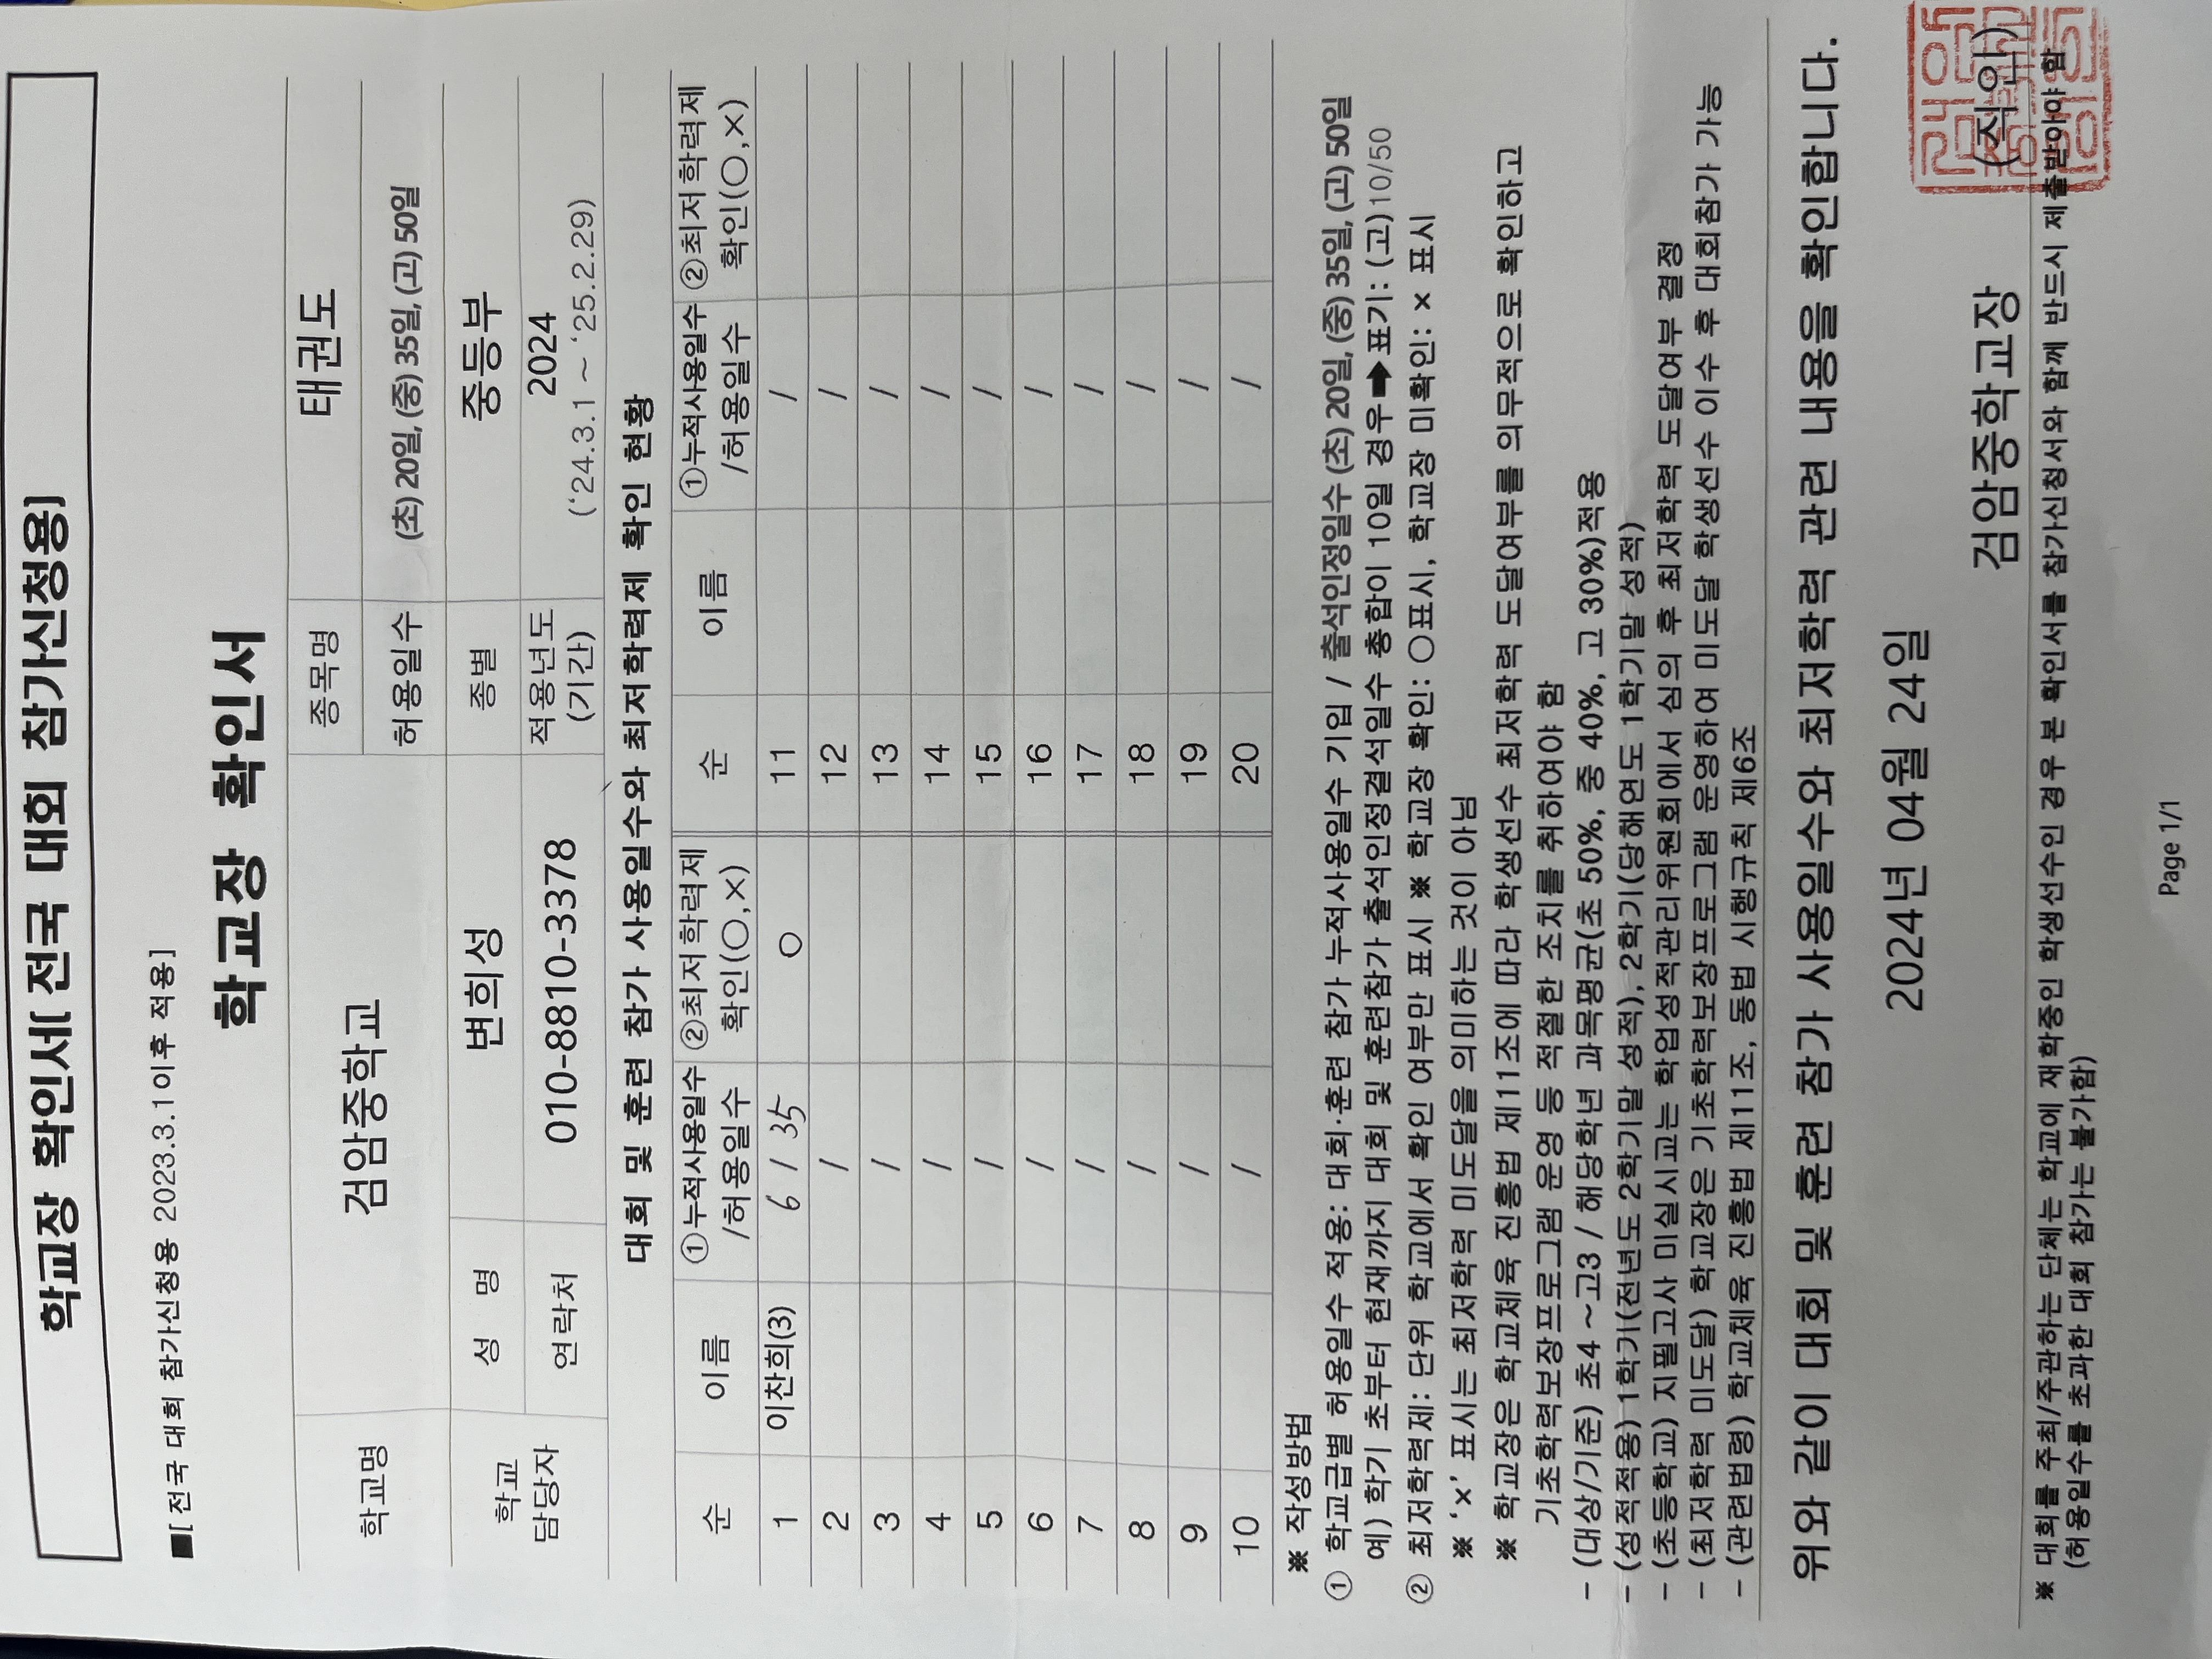 학교장 확인서[전국 대회 참가신청용]
■[전국 대회 참가신청용 2023.3.1이후 적용]
학교장 확인서
학교명 검암중학교 종목명 태권도
허용일수 (초) 20일, (중) 35일, (고) 50일
학교 담당자 성 명 변희성 종별 중등부
연락처 010-8810-3378 적용년도 (기간) 2024 (‘24.3.1 ~ ‘25.2.29)
대회 및 훈련 참가 사용일수와 최저학력제 확인 현황
순 이름 ①누적사용일수 /허용일수 ②최저학력제 확인(○,×) 순 이름 ①누적사용일수 /허용일수 ②최저학력제 확인(○,×)
1 이찬희(3) 6 / 35 ○ 11 /
2 / 12 /
3 / 13 /
4 / 14 /
5 / 15 /
6 / 16 /
7 / 17 /
8 / 18 /
9 / 19 /
10 / 20 /
※ 작성방법
① 학교급별 허용일수 적용: 대회·훈련 참가 누적사용일수 기입 / 출석인정일수 (초) 20일, (중) 35일, (고) 50일
예) 학기 초부터 현재까지 대회 및 훈련참가 출석인정결석일수 총합이 10일 경우➡표기: (고)10/50
② 최저학력제: 단위 학교에서 확인 여부만 표시 ※ 학교장 확인: ○표시, 학교장 미확인: × 표시
※ ‘×’ 표시는 최저학력 미도달을 의미하는 것이 아님
※ 학교장은 학교체육 진흥법 제11조에 따라 학생선수 최저학력 도달여부를 의무적으로 확인하고
기초학력보장프로그램 운영 등 적절한 조치를 취하여야 함
- (대상/기준) 초4 ~고3 / 해당학년 과목평균(초 50%, 중 40%, 고 30%)적용
- (성적적용) 1학기(전년도 2학기말 성적), 2학기(당해연도 1학기말 성적)
- (초등학교) 지필고사 미실시교는 학업성적관리위원회에서 심의 후 최저학력 도달여부 결정
- (최저학력 미도달) 학교장은 기초학력보장프로그램 운영하여 미도달 학생선수 이수 후 대회참가 가능
- (관련법령) 학교체육 진흥법 제11조, 동법 시행규칙 제6조
위와 같이 대회 및 훈련 참가 사용일수와 최저학력 관련 내용을 확인합니다.
2024년 04월 24일
검암중학교장 (직인)
※ 대회를 주최/주관하는 단체는 학교에 재학중인 학생선수인 경우 본 확인서를 참가신청서와 함께 반드시 제출받아야 함
(허용일수를 초과한 대회 참가는 불가함)
Page 1/1